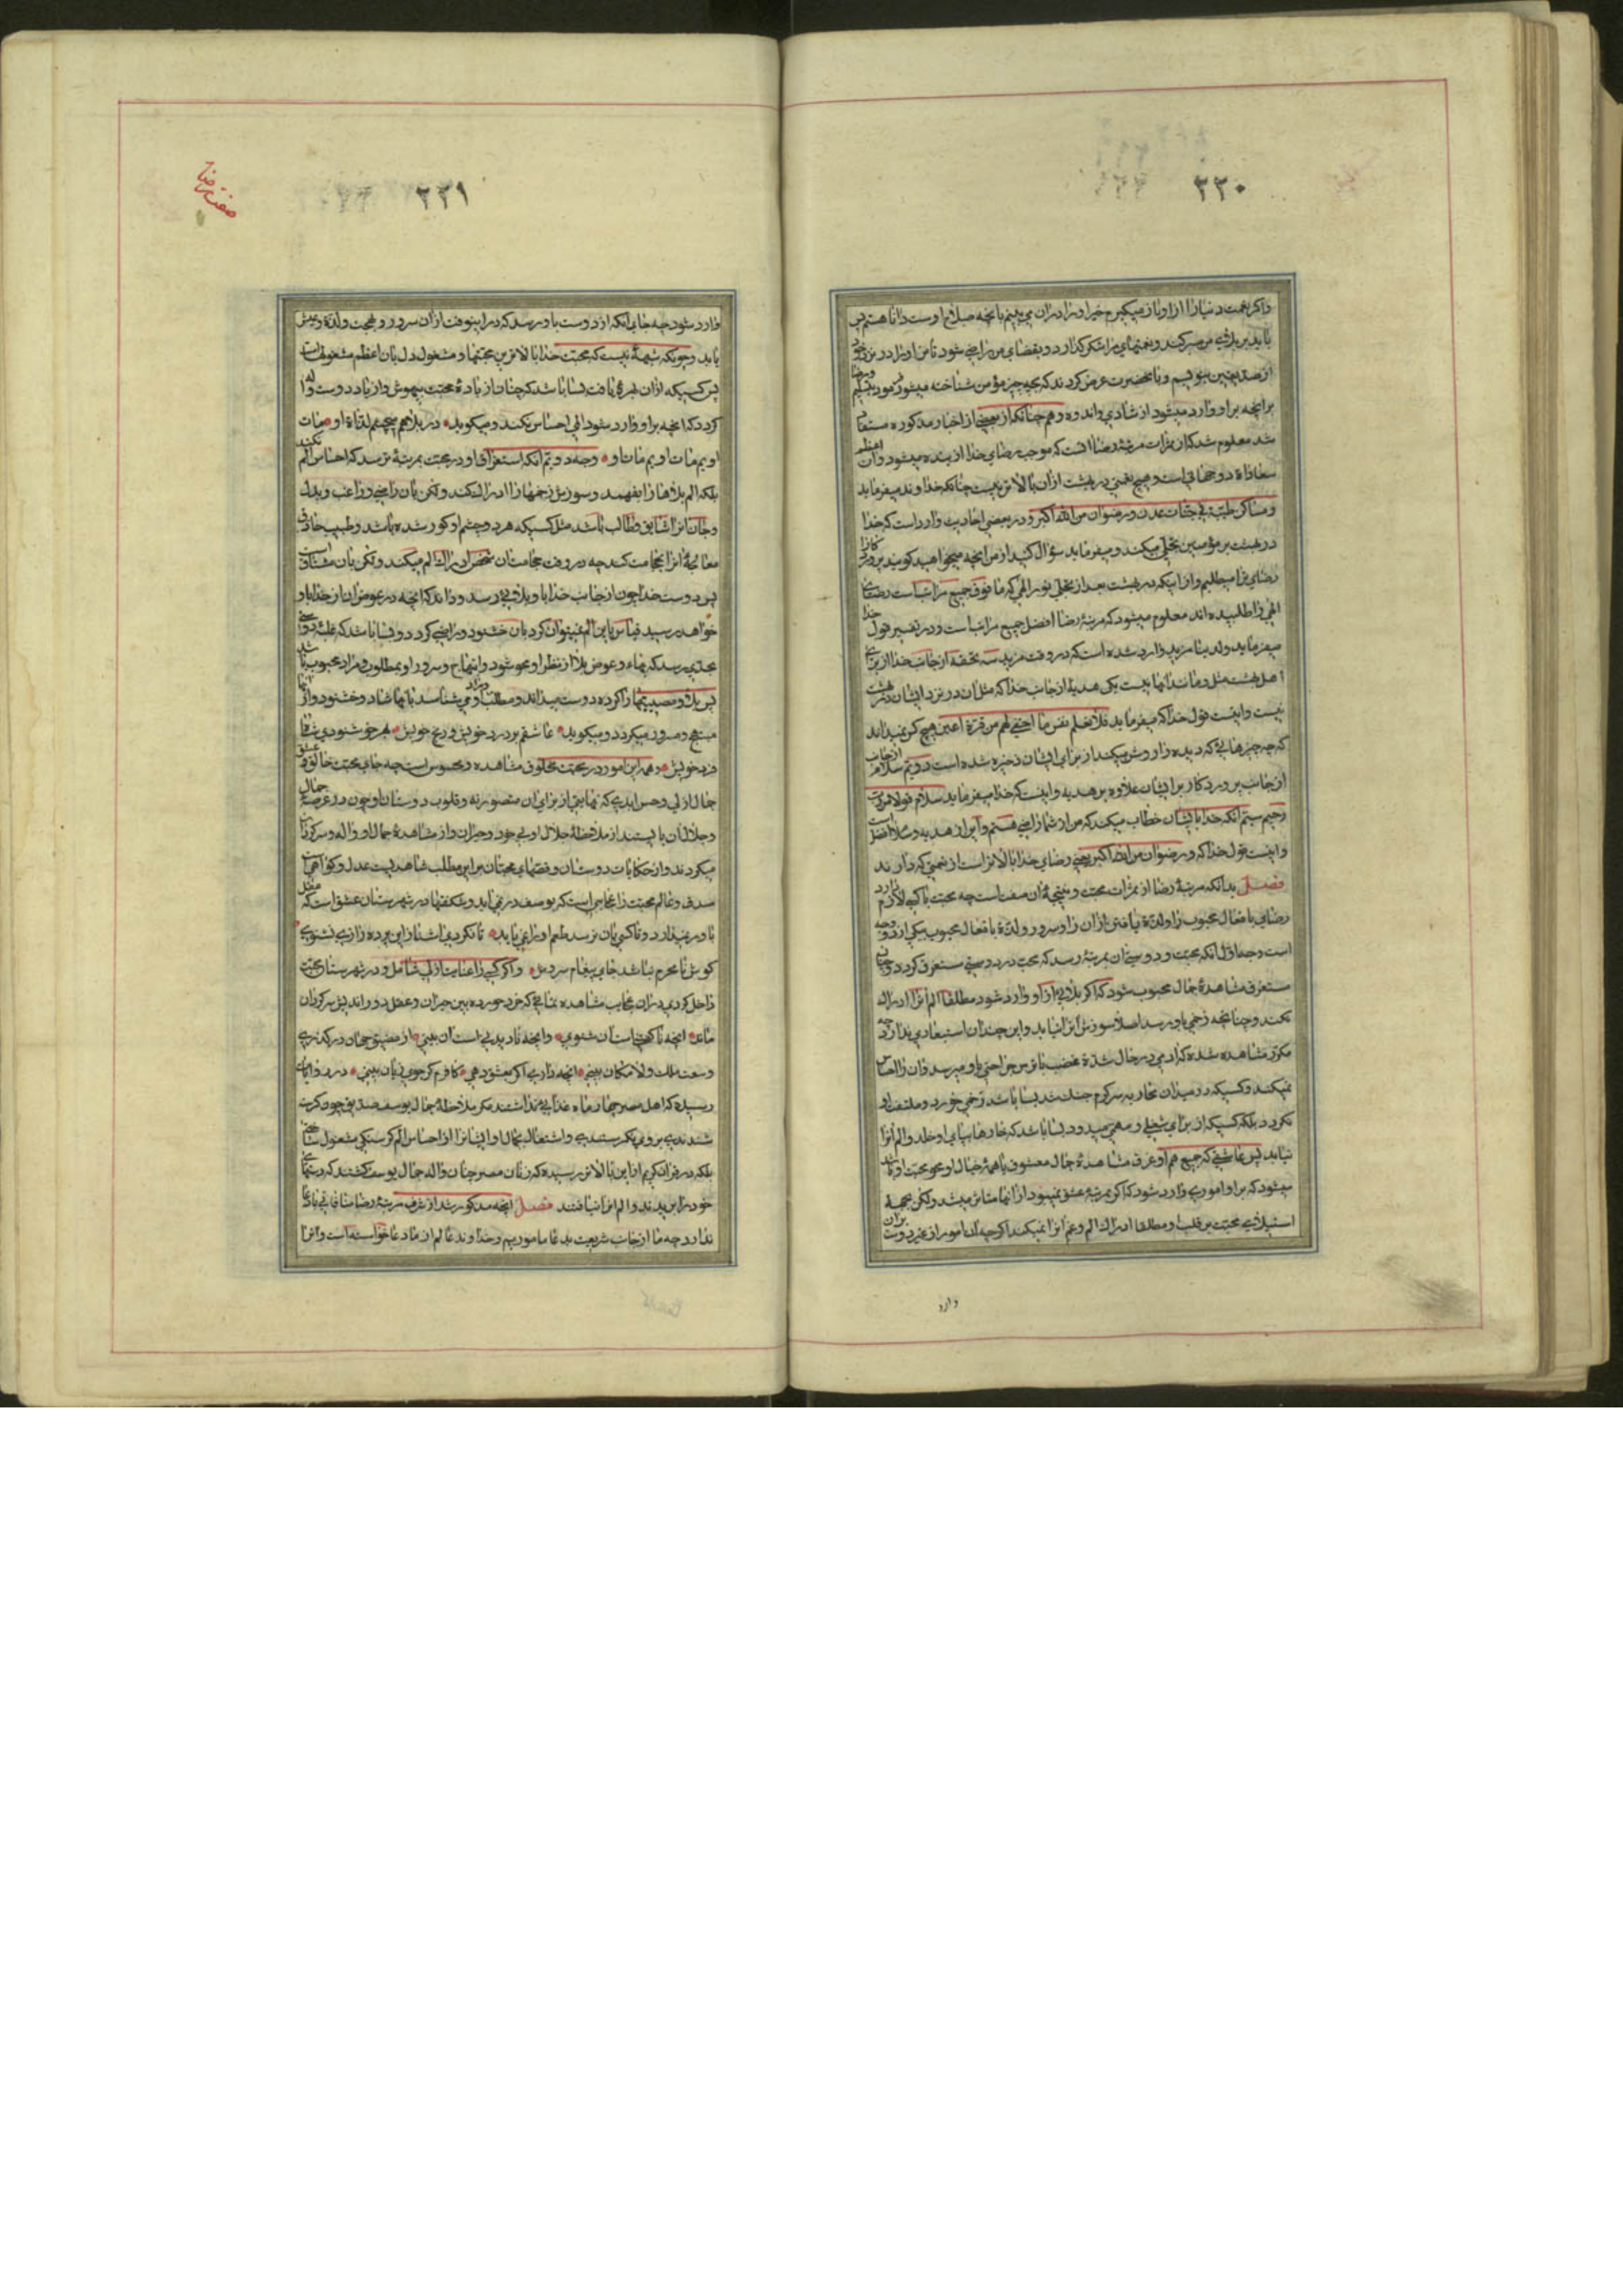 ۳۳۰
و اگر نعمت دنیا را از او باز میگیرم خیر او را در آن می بینم بانچه صلاح اوست دانا هستم پس
باید بر بلای من صبر کند و نعمتهای مرا شکر گذارد و بقضای من راضی شود تا من او را در نزد خود
از صدیقین بنویسم و بآنحضرت عرض کردند که بچه چیز مؤمن شناخته میشود فرمود بتسلیم و رضا
برانچه بر او وارد میشود از شادی و اندوه و همچنانکه از بعضی از اخبار مذکوره مستفاد
شد معلوم شد که از ثمرات مرتبهٔ رضا انست که موجب رضای خدا از بنده میشود و آن اعظم
سعادات دو جهانی است و هیچ نعمتی در بهشت از آن بالاتر نیست چنانکه خداوند میفرماید
و مساکن طیبة فی جنات عدن و رضوان من الله اکبر و در بعضی احادیث وارد است که خدا
در بهشت بر مؤمنین تجلی میکند و میفرماید سؤال کنید از من انچه میخواهید گویند پروردگارا
رضای ترا میطلبیم و از اینکه در بهشت بعد از تجلی نور الهی که ما فوق جمیع مراتبست رضای
الهی را طلبیده اند معلوم میشود که مرتبهٔ رضا افضل جمیع مراتب است و در تفسیر قول خدا
میفرماید ولدینا مزید وارد شده است که در وقت مزید سه تحفه از جانب خدا از برای
اهل بهشت میرسد که مثل و مانند انها نیست یکی هدیهٔ از جانب خدا که مثل آن در نزد ایشان در بهشت
نیست و اینست قول خدا که میفرماید فلا تعلم نفس ما اخفی لهم من قرة اعین هیچ کس نمیداند
که چه چیزهائی که دیده را روشن میکند از برای ایشان ذخیره شده است دویم سلام از جانب
از جانب پروردگار بر ایشان علاوه بر هدیه و اینست که خدا میفرماید سلام قولا من رب
رحیم سیم انکه خدا بایشان خطاب میکند که من از شما راضی هستم و این از هدیه و سلام افضل است
و اینست قول خدا که و رضوان من الله اکبر یعنی رضای خدا بالاتر است از نعمتی که دارند
فصل بدانکه مرتبهٔ رضا از ثمرات محبت و نتیجهٔ آن صفت است چه محبت با کسی لازم دارد
رضای بافعال محبوب را و لذت یافتن از آن را و سرور و لذة بافعال محبوب یکی از دو وجه
است وجه اول انکه محبت و دوستی آن بمرتبهٔ رسد که محب در دوستی مستغرق گردد و چنان
مستغرق مشاهدهٔ جمال محبوب شود که اگر بلائی از او وارد شود مطلقا الم انرا ادراک
نکند و چنانچه زخمی باو رسد اصلا سوزش انرا نیابد و این چندان استبعادی ندارد چه
مکرر مشاهده شده که ادمی در حال شدة غضب یا ترس جراحتی باو میرسد و آن را احساس
نمیکند و کسیکه در میدان محاربه سرگرم جنک شد بسا باشد زخمی خورد و ملتفت او
نگردد بلکه کسیکه از برای شغلی و مهمی میدود بسا باشد که خارها بپای او خلد و الم انرا
نیابد پس عاشقی که جمیع هم او غرق مشاهدهٔ جمال معشوق یا همهٔ خیال او محو محبت او باشد
میشود که بر او اموری وارد شود که اگر بمرتبهٔ عشق نمیبود از انها متاثر میشد ولکن بجهة
استیلای محبت بر قلب او مطلقا ادراک الم و غم انرا نمیکند اگر چه آن امور از غیر دوست بر آن
وارد
۳۳۱
صفت رضا
وارد شود چه جای انکه از دوست باو رسد که در اینوقت از آن سرور و بهجت و لذة و عیش
یابد و چونکه شبههٔ نیست که محبت خدا بالاترین محبتها و مشغول دل بان اعظم مشغولیتهاست
پس کسیکه از آن بهرهٔ یافت بسا باشد که چنان از بادهٔ محبت بیهوش و از یاد دوست واله
گردد که انچه بر او وارد شود المی احساس نکند و میگوید در بلا هم میچشم لذات او مات
اویم مات اویم مات او وجه دویم انکه استغراق او در محبت بمرتبهٔ نرسد که احساس الم نکند
بلکه الم بلاها را بفهمد و سوزش زخمها را ادراک کند ولکن بان راضی و راغب و بدل
و جان انرا شایق و طالب باشد مثل کسیکه هر دو چشم او کور شده باشد و طبیب حاذق
معالجهٔ انرا بحجامت کند چه در وقت حجامت آن شخص ادراک الم میکند ولکن بان مشتاق است
پس دوست خدا چون از جانب خدا باو بلائی رسد و داند که انچه در عوض آن از خدا باو
خواهد رسید قیاس باین الم نمیتوان کرد بان خشنود و راضی گردد و بسا باشد که غلبهٔ دوستی
بحدی رسد که بهاء و عوض بلا از نظر او محو شود و ابتهاج و سرور او بمطلوب و مراد محبوب باشد
پس بلا و مصیبتها را کرده دوست میداند و مطلب او می شناسد بانها شاد و خشنود و از آنها
مبتهج و مسرور میگردد و میگوید عاشقم بر درد خویش و رنج خویش بهر خوشنودی شاه
فرد خویش و همه این امور در محبت مخلوق مشاهده و محسوس است چه جای محبت خالق و عشق
جمال ازلی و حسن ابدی که نهایتی از برای آن متصور نه و قلوب دوستان او چون در عرصهٔ جمال
و جلال آن بایستند از ملاحظهٔ جلال او بی خود و حیران و از مشاهدهٔ جمال او واله و سرگردان
میگردند و از حکایات دوستان و قصهای محبتان بر این مطلب شاهدیست عدل و گواهی است
صدق و عالم محبت را عجایبی است که بوصف در نمی اید و شگفتیها در شهرستان عشق است که عقل
باور ندارد و تا کسی بان نرسد طعم او را نمی یابد تا نگردی اشنا زین پرده رازی نشنوی
گوش نامحرم نباشد جای پیغام سروش و اگر کسی را عنایت ازلی شامل و در شهرستان محبت
داخل گردی در آن عجایب مشاهده نمائی که خرد خورده بین حیران و عقل دور اندیش سرگردان
ماند انچه ناگفتنی است آن شنوی وانچه نادیدنی است آن بینی از مضیق جهان در گذری
وسعت ملک لا مکان بینی انچه داری اگر بعشق دهی کافرم گر جوی زیان بینی در روایات
رسیده که اهل مصر چهار ماه غذایی نداشتند مگر ملاحظهٔ جمال یوسف صدیق چون گرسنه
شدندی بر وی نگریستندی و اشتغال بجمال او ایشانرا از احساس الم گرسنگی مشغول ساختی
بلکه در قرآن کریم از این بالاتر رسیده که زنان مصر چنان واله جمال یوسف گشتند که دستهای
خود را بریدند و الم انرا نیافتند فصل انچه مذکور شد از شرف مرتبهٔ رضا منافاتی با دعا
ندارد چه ما از جانب شریعت بدعا ماموریم و خداوند عالم از ما دعا خواسته است و انرا